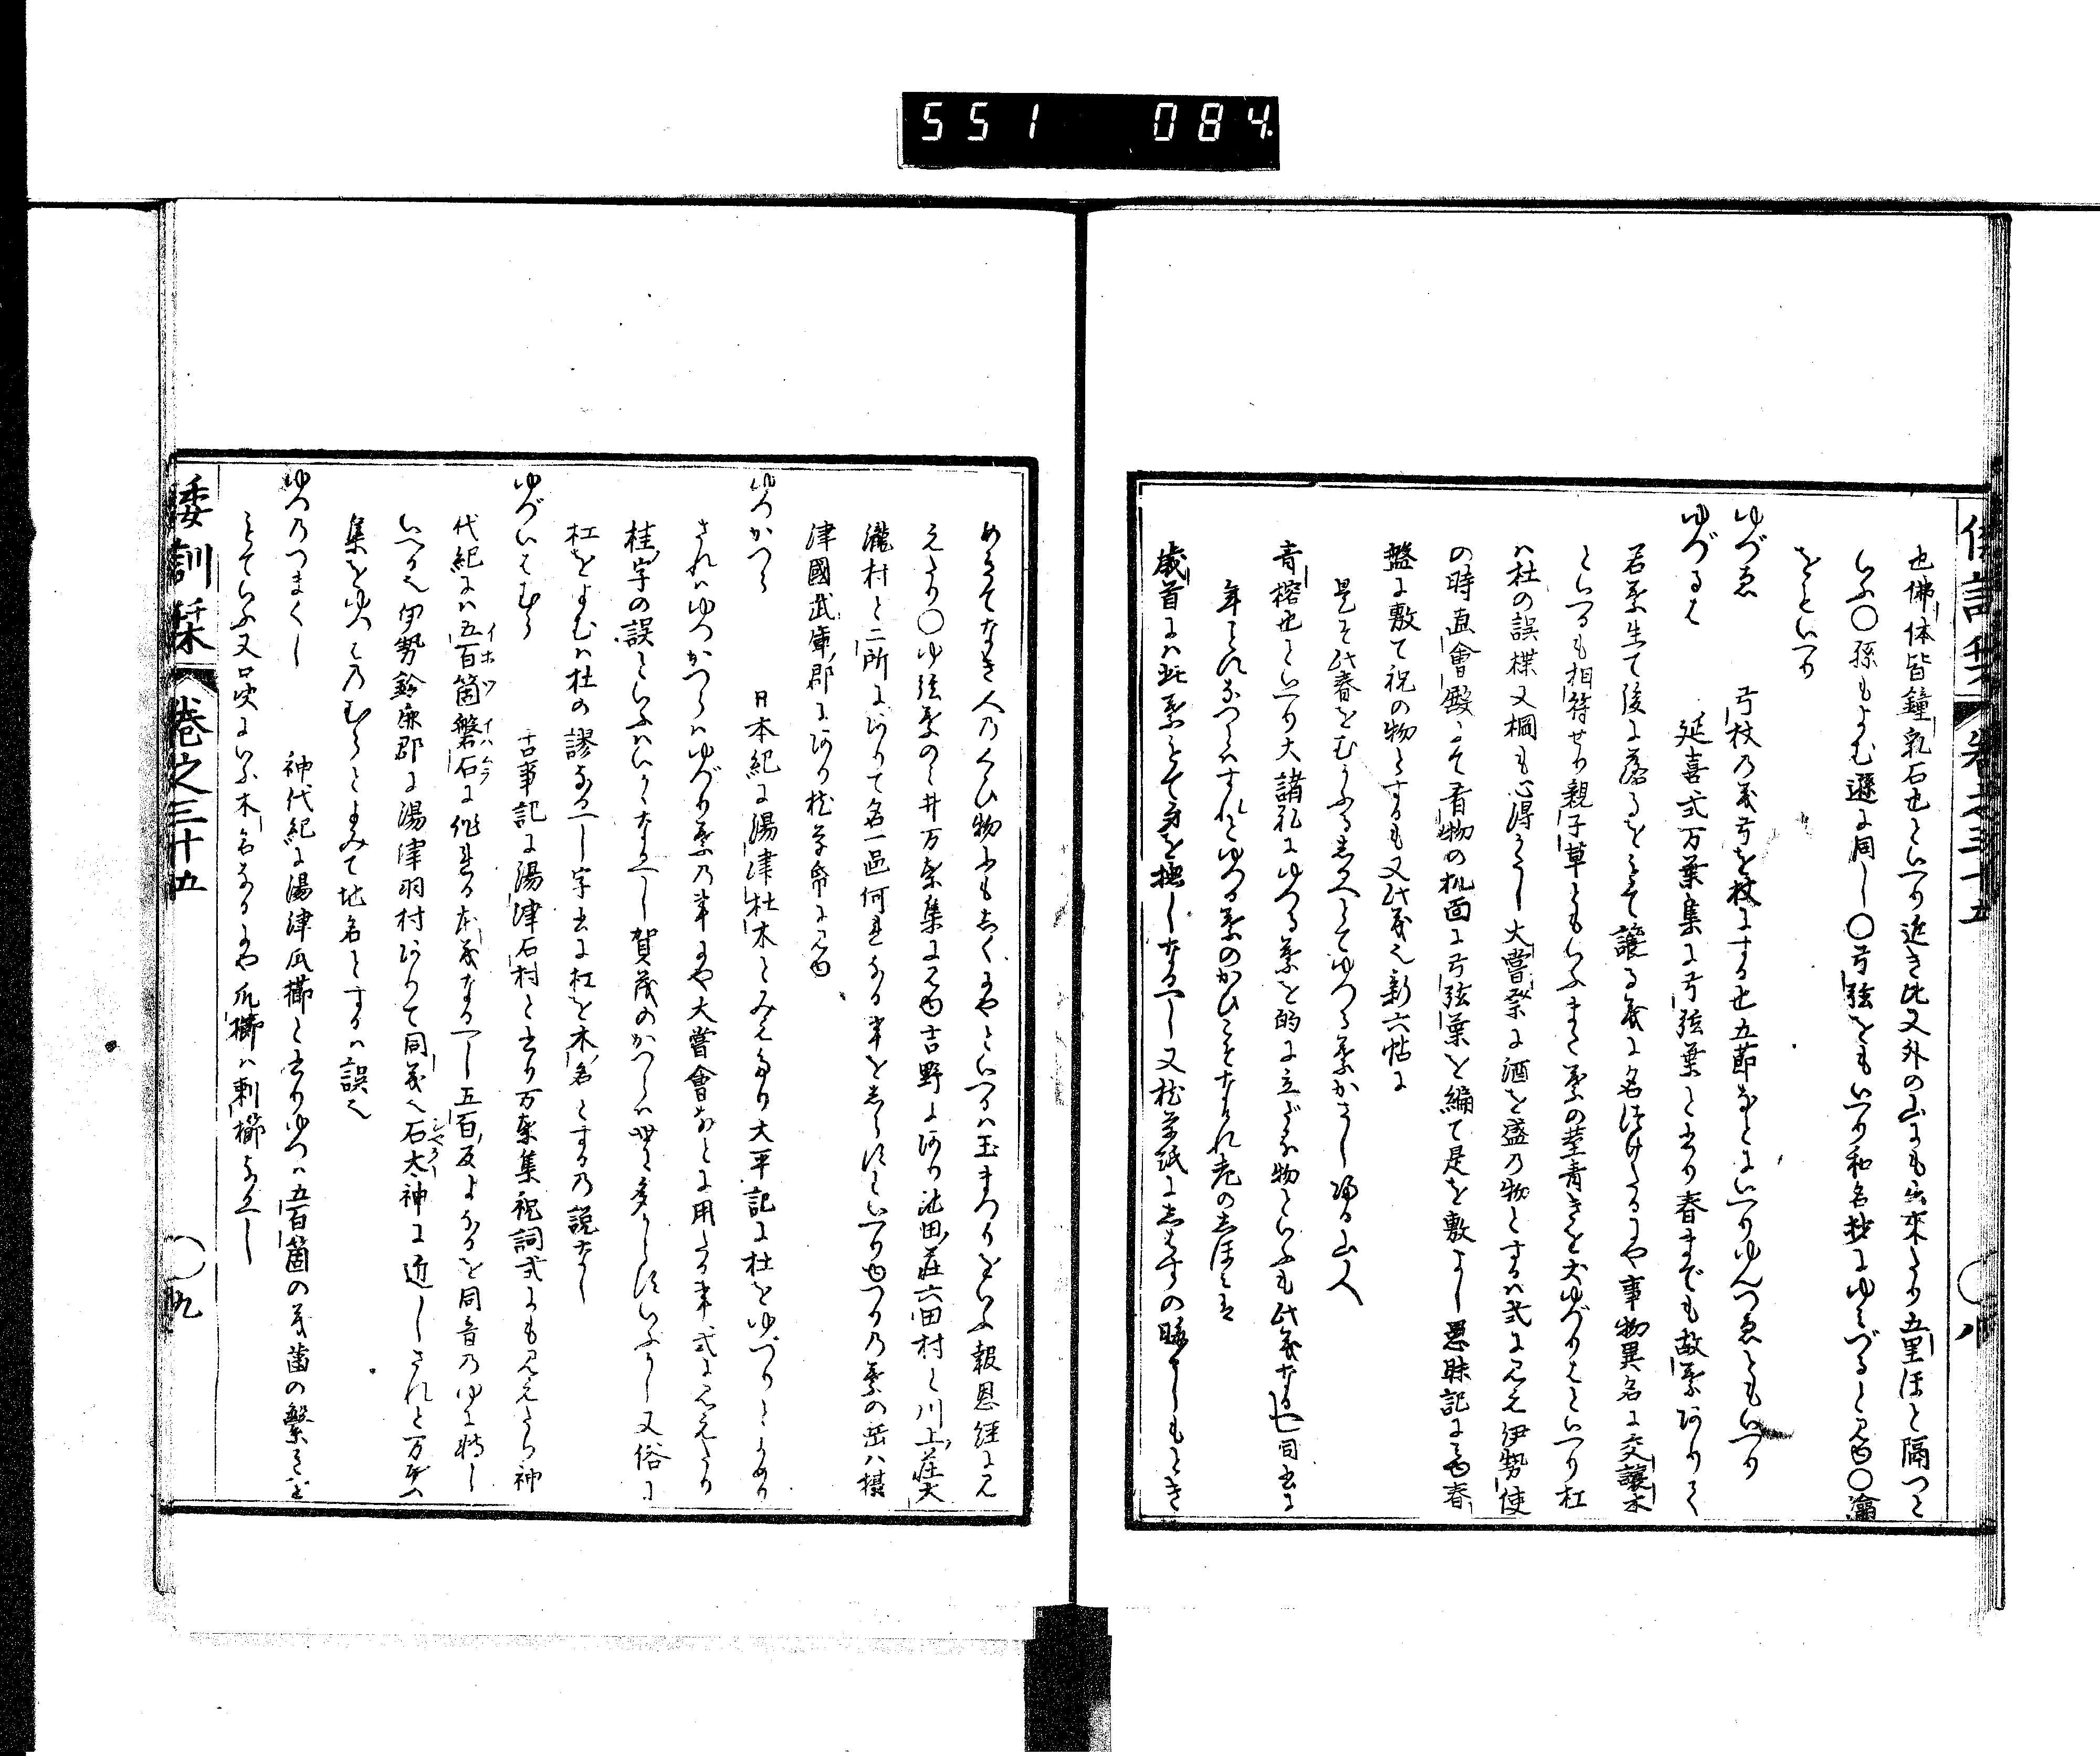 551 084
也佛体皆鐘乳石也といへり近き比又外の山にも出来たり五里ほと隔つと
いふ〇孫もよむ遜に同し〇弓弦をもいへり和名抄にゆみづると見ゆ〇瀹
をもいへり
ゆづゑ 弓杖の義弓を杖にする也五節なとにいへりゆんつゑともいへり
ゆづるは 延喜式万葉集に弓弦葉と書り春までも故葉ありて
若葉生て後に落るをもて譲る義に名つけたるにや事物異名に交讓木
といへるも相符せり親子草ともいふまた葉の茎青きを犬ゆづりはといへり杠
ハ杜の誤楪又棡も心得かたし大嘗祭に酒を盛の物とするハ式に見え伊勢使
の時直會殿にて肴物の机面に弓弦葉を編て是を敷よし愚昧記に見ゆ春
盤に敷て祝の物とするも又此義也新六帖に
是そ此春をむかふるしるへとてゆつる葉かさし帰る山人
青榕也といへり大諸礼にゆつる葉を的に立ざる物といふも此義なる也同書に
年ことにあつらへすれとゆつる葉のかひこそなけれ老のしほれは
歳首にハ此葉をもて身を撫しなるへし又枕草紙にしはすの晦にしもとき
めきてなき人のくひ物にもしくにやといへるハ玉まつりをいふ報恩経に見
えたり〇ゆ弦葉のみ井万葉集に見ゆ吉野にあり池田莊六田村と川上莊大
瀧村と二所にありて名一區何れなる事をしらすといへりゆつりの葉の岳ハ攝
津國武庫郡にあり枕草帋に見ゆ
ゆつかつら 日本紀に湯津杜木とみえたり大平記に杜をゆづりとよめり
されハゆつかつらハゆづり葉の事にや大嘗會なとに用る事式に見えたり
桂字の誤といふハいかゝなるへし賀茂のかつらハ世に多からすいふかし又俗に
杠をよむハ杜の謬なるへし字書に杠を木名とするの説なし
ゆづいはむら 古事記に湯津石村と書り万葉集祝詞式にも見えたり神
代紀にハ五百箇磐石に作れる本義なるへし五百反よなるを同音のゆに轉し
イホツイハムラ
いへる也伊勢鈴鹿郡に湯津羽村ありて同義也石大神に近しされと万葉
集をゆつはのむらとよみて地名とするハ誤也
ゆつのつまくし 神代紀に湯津爪櫛と書りゆつハ五百箇の義齒の繁きを
もていふ又口决にいふ木名なるにや爪櫛ハ刺櫛なるへし
倭訓栞 卷之三十五 〇八
倭訓栞 卷之三十五 〇九